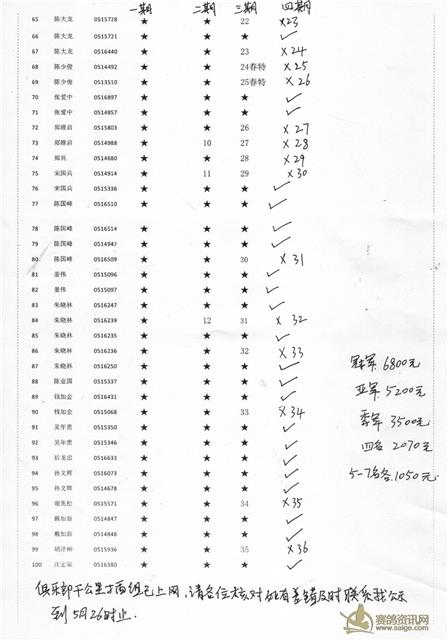 一期 二期 三期 四期
65 陈大龙 0515728 ★ ★ 22 ×23
66 陈大龙 0515721 ★ ★ ★ ✓
67 陈大龙 0516440 ★ ★ 23 ×24
68 陈少俊 0514492 ★ ★ 24春特 ×25
69 陈少俊 0513510 ★ ★ 25春特 ×26
70 张爱中 0516897 ★ ★ ★ ✓
71 张爱中 0514857 ★ ★ ★ ✓
72 郑维启 0515803 ★ ★ 26 ×27
73 郑维启 0514988 ★ 10 27 ×28
74 郑兵 0514680 ★ ★ 28 ×29
75 宋国兵 0514914 ★ 11 29 ×30
76 宋国兵 0515336 ★ ★ ★ ✓
77 陈国峰 0516510 ★ ★ ★ ✓
78 陈国峰 0516514 ★ ★ ★ ✓
79 陈国峰 0514947 ★ ★ ★ ✓
80 陈国峰 0516509 ★ ★ 30 ×31
81 姜伟 0515096 ★ ★ ★ ✓
82 姜伟 0515097 ★ ★ ★ ✓
83 朱晓林 0516247 ★ ★ ★ ✓
84 朱晓林 0516239 ★ 12 31 ×32
85 朱晓林 0516235 ★ ★ ★ ✓
86 朱晓林 0516236 ★ ★ 32 ×33
87 朱晓林 0516250 ★ ★ ★ ✓
88 陈业国 0515337 ★ ★ ★ ✓
89 钱加金 0516431 ★ ★ ★ ✓
90 钱加金 0515068 ★ ★ 33 ×34
91 吴年贵 0515350 ★ ★ ★ ✓
92 吴年贵 0515346 ★ ★ ★ ✓
93 后龙忠 0516633 ★ ★ ★ ✓
94 孙文辉 0516073 ★ ★ ★ ✓
95 孙文辉 0514678 ★ ★ ★ ✓
96 谢兆松 0515571 ★ ★ 34 ×35
97 戴如新 0514847 ★ ★ ★ ✓
98 戴如新 0514848 ★ ★ ★ ✓
99 胡泽柳 0515936 ★ ★ 35 ×36
100 沈宏斌 0516380 ★ ★ ★ ✓
冠军 6800元
亚军 5200元
季军 3500元
四名 2070元
5-7名各1050元
俱乐部千公里丁丙组已上网,请各位核对如有差错及时联系我公示
到5月26时止.
赛鸽资讯网
www.saige.com